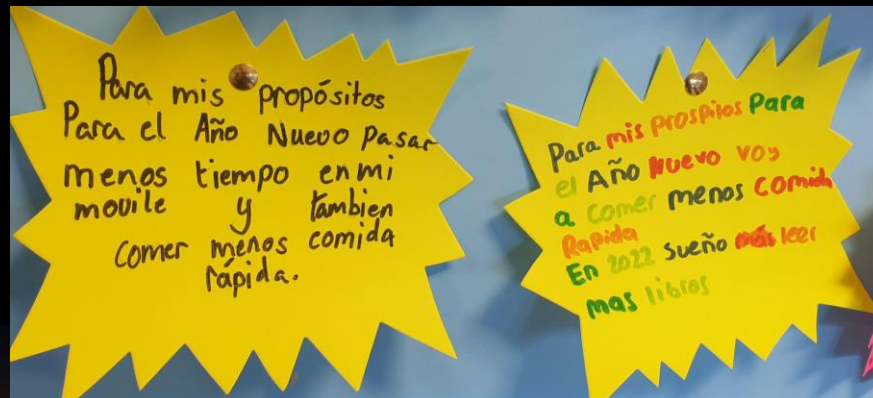 Para mis propósitos
Para el Año Nuevo pasar
menos tiempo en mi
movile y tambien
comer menos comida
rápida.
Para mis prospitos Para
el Año Nuevo voy
a comer menos comida
Rapida
En 2022 sueño más leer
mas libros